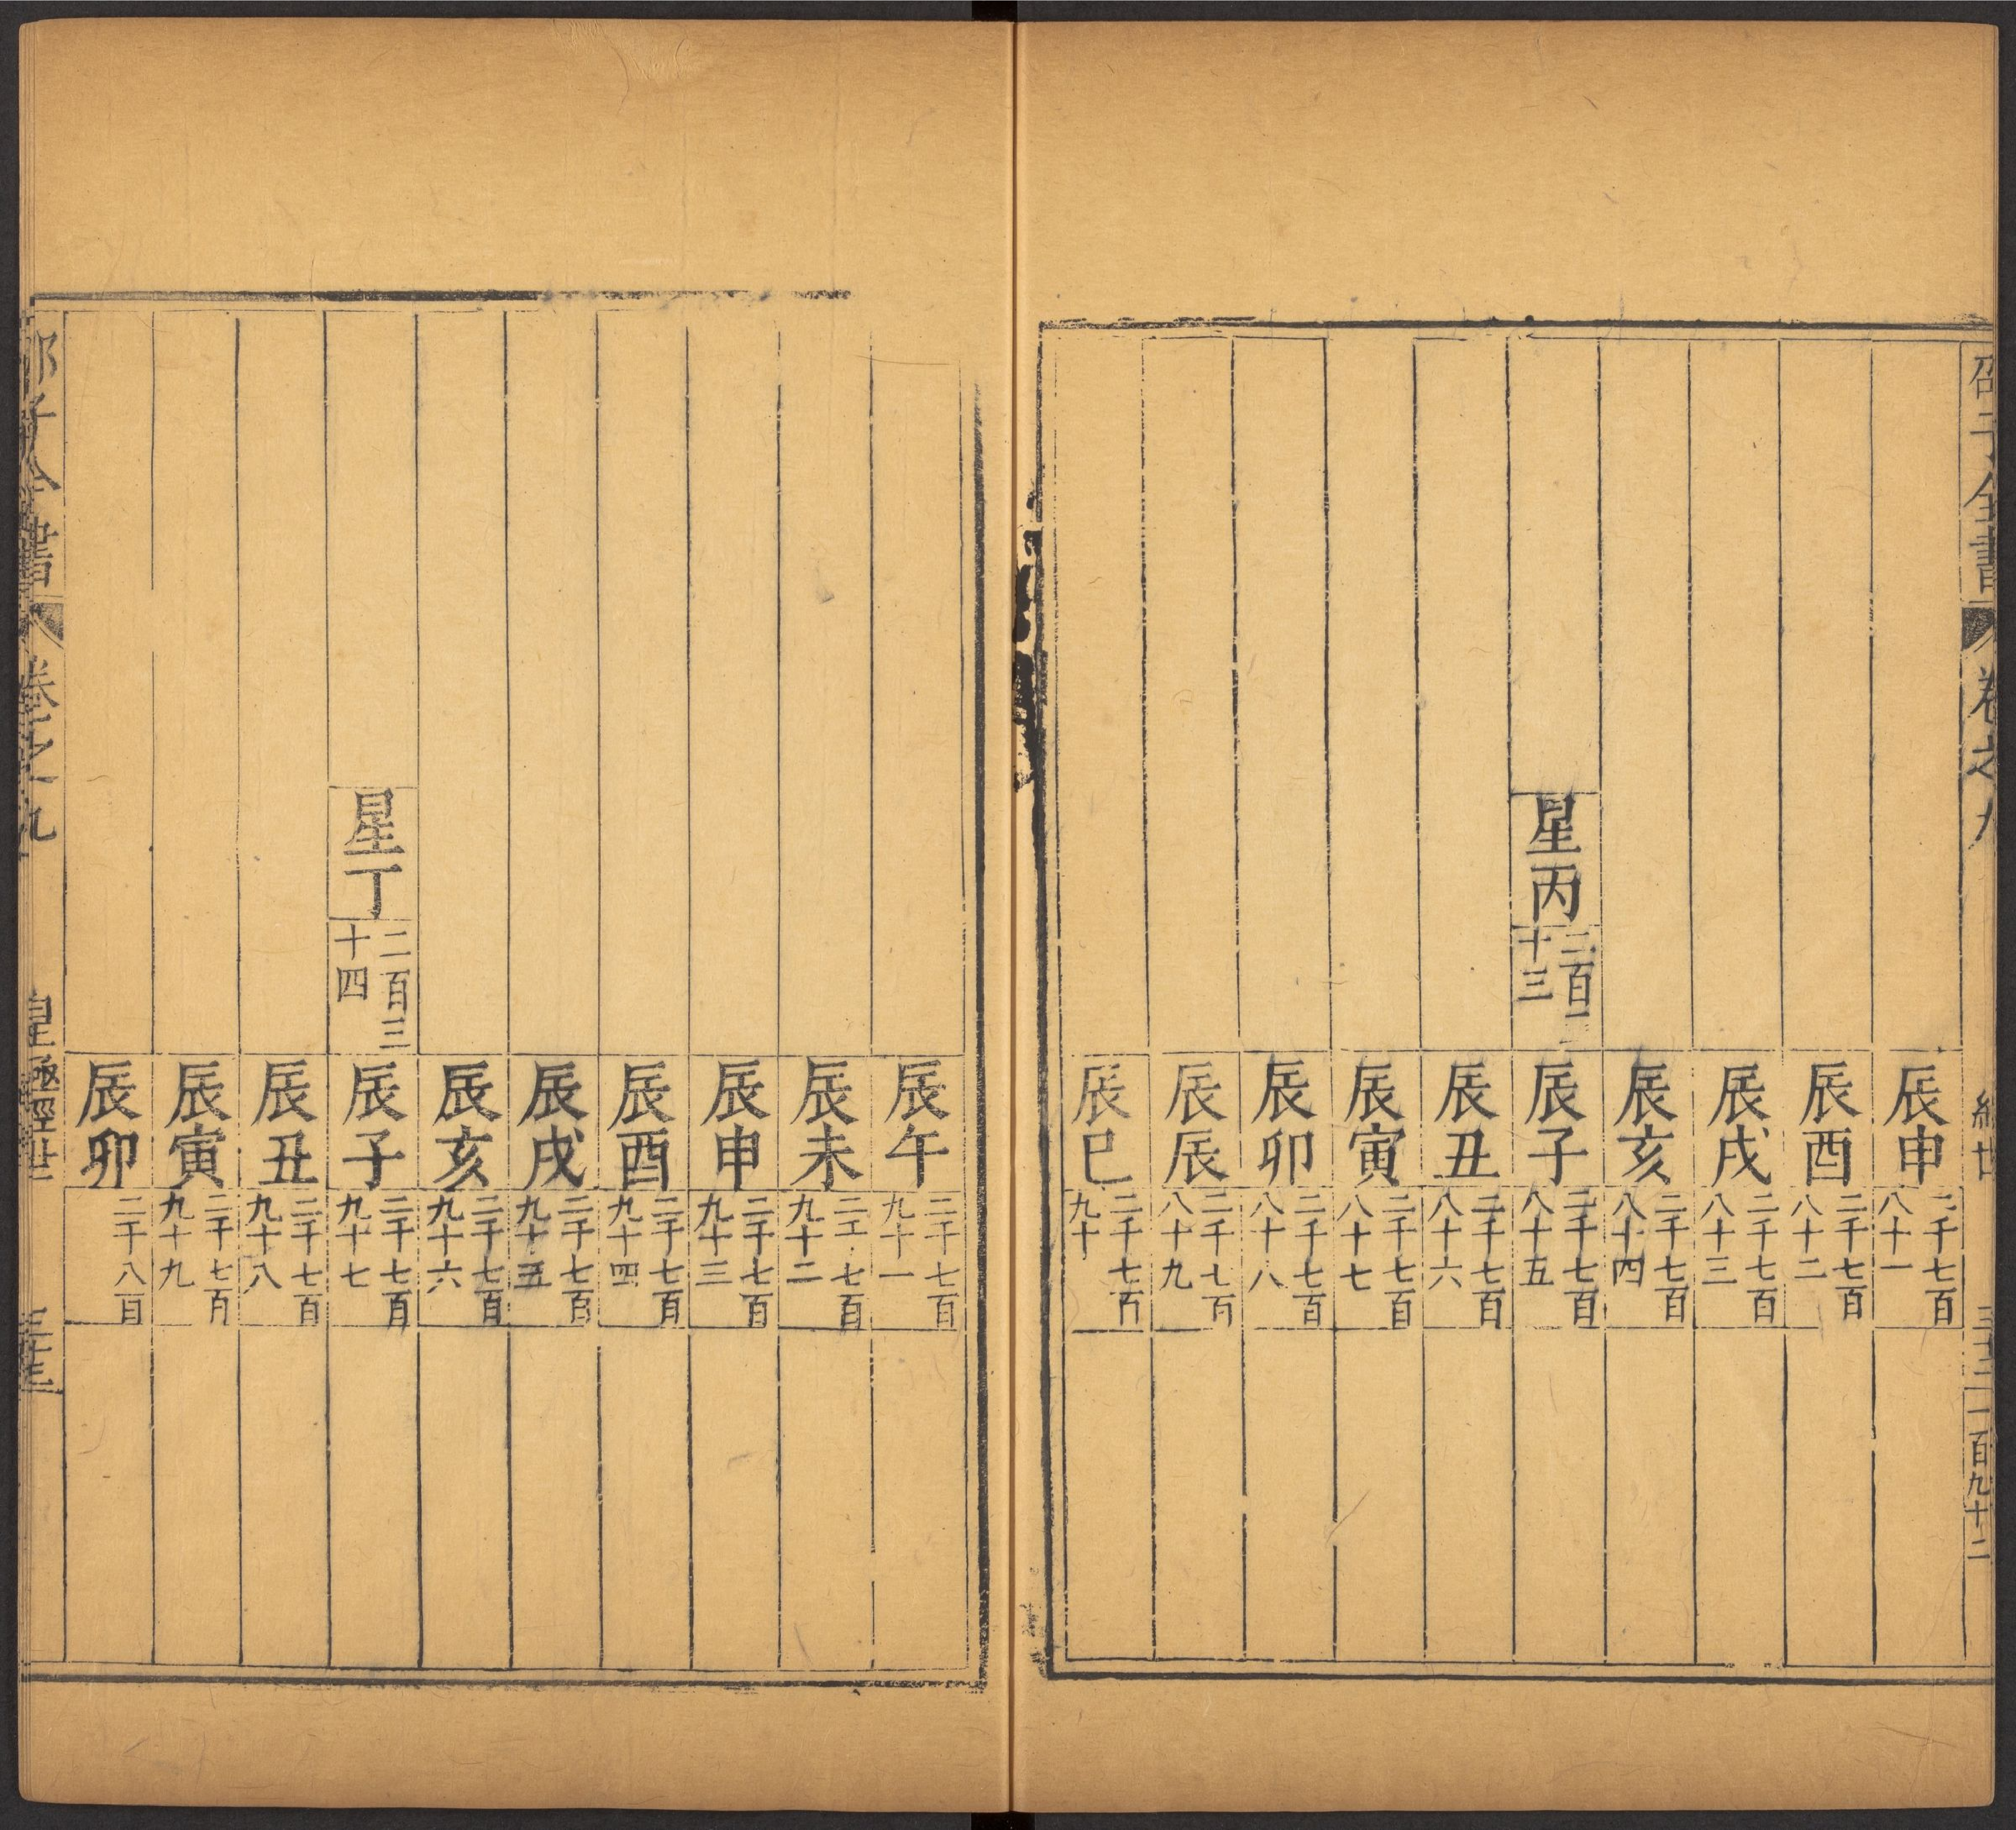 邵子全書 卷之九 經世 三十二 一百九十二
辰申 二千七百八十一
辰酉 二千七百八十二
辰戌 二千七百八十三
辰亥 二千七百八十四
星丙 二百三十三 辰子 二千七百八十五
辰丑 二千七百八十六
辰寅 二千七百八十七
辰卯 二千七百八十八
辰辰 二千七百八十九
辰巳 二千七百九十
辰午 二千七百九十一
辰未 二千七百九十二
辰申 二千七百九十三
辰酉 二千七百九十四
辰戌 二千七百九十五
辰亥 二千七百九十六
星丁 二百三十四 辰子 二千七百九十七
辰丑 二千七百九十八
辰寅 二千七百九十九
辰卯 二千八百
邵子全書 卷之九 皇極經世 三十三